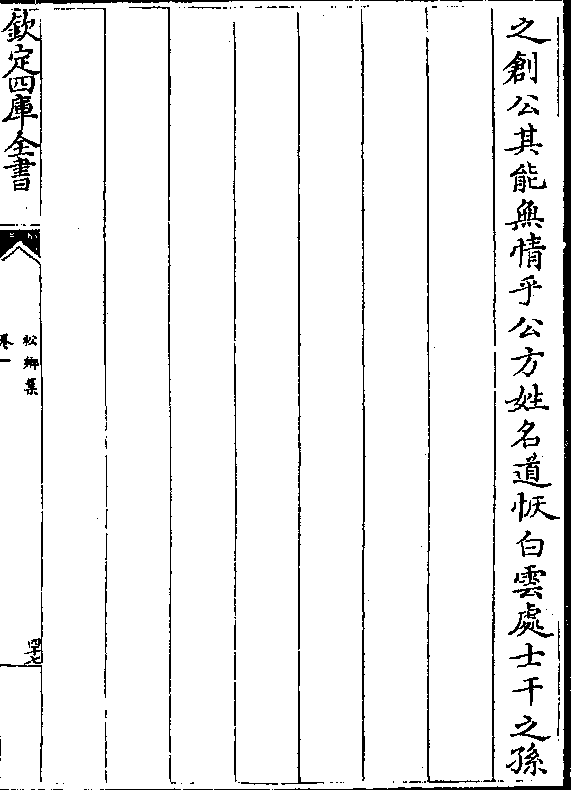 之創公其能無情乎公方姓名道恹白雲處士干之孫
欽定四庫全書
松鄉集
卷一
四十七